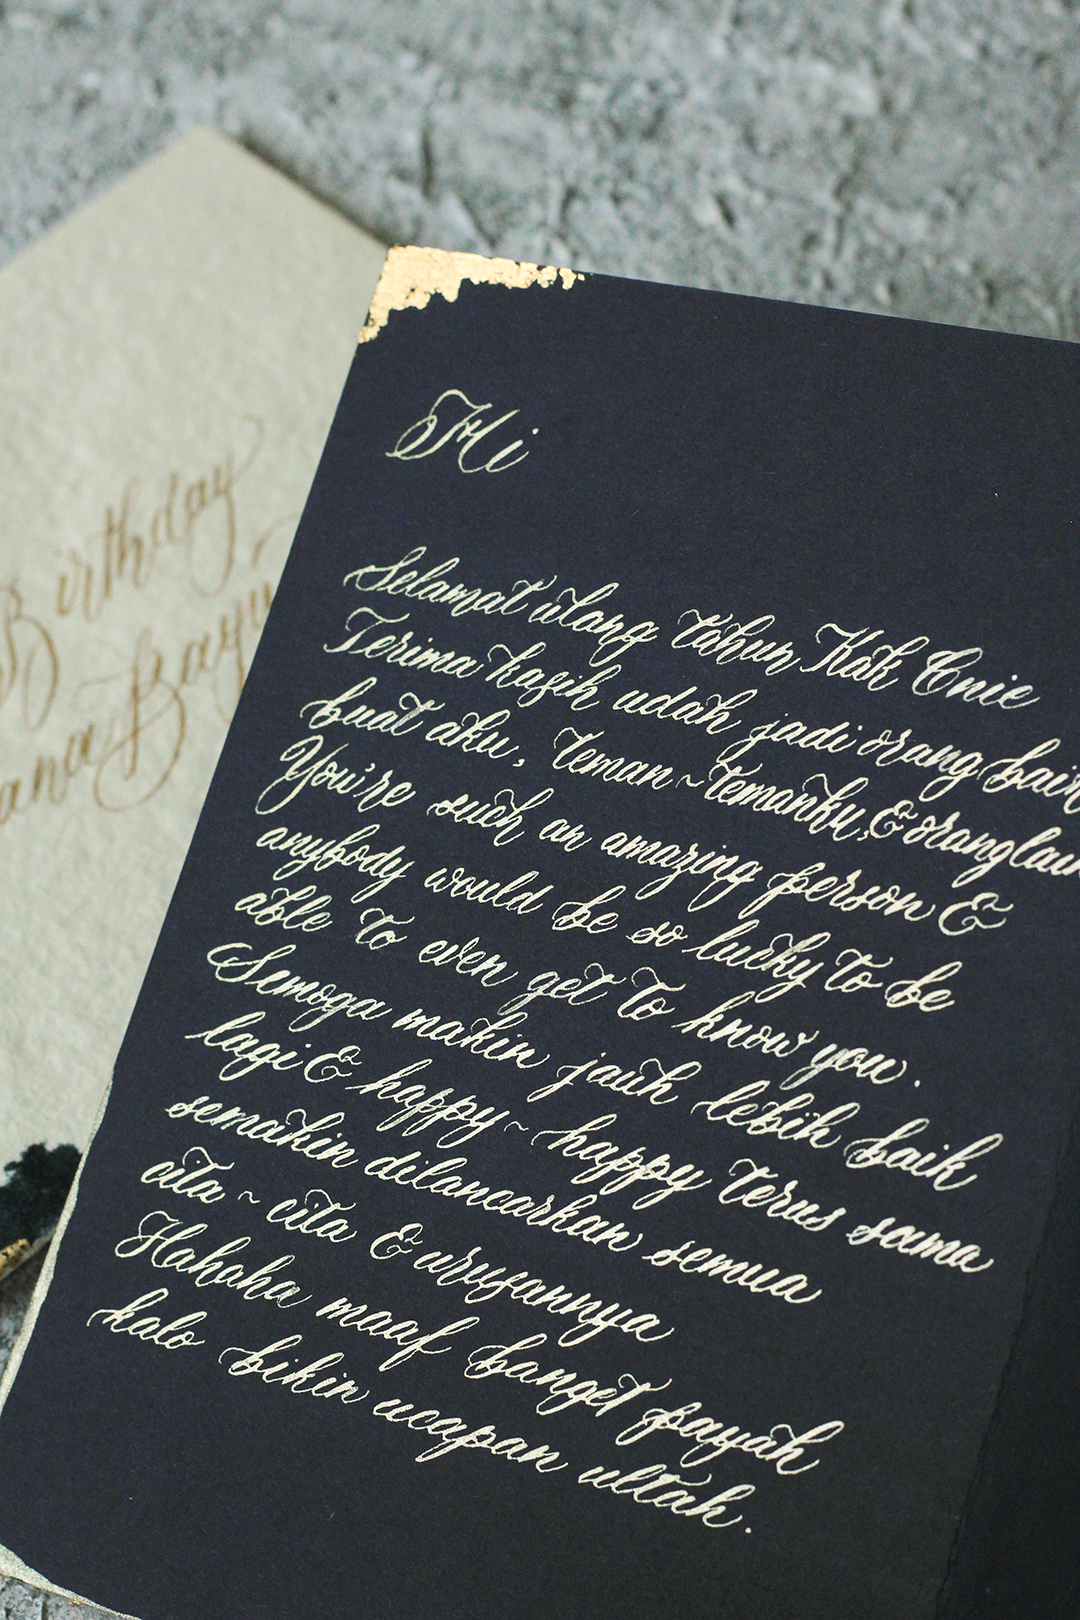 Birthday
Hi
Selamat ulang tahun Kak Enie
Terima kasih udah jadi orang baik
buat aku, teman~temanku, & orang lain
You're such an amazing person &
anybody would be so lucky to be
able to even get to know you.
Semoga makin jauh lebih baik
lagi & happy~happy terus sama
semakin dilancarkan semua
cita~cita & urusannya
Hahaha maaf banget payah
kalo bikin ucapan ultah.